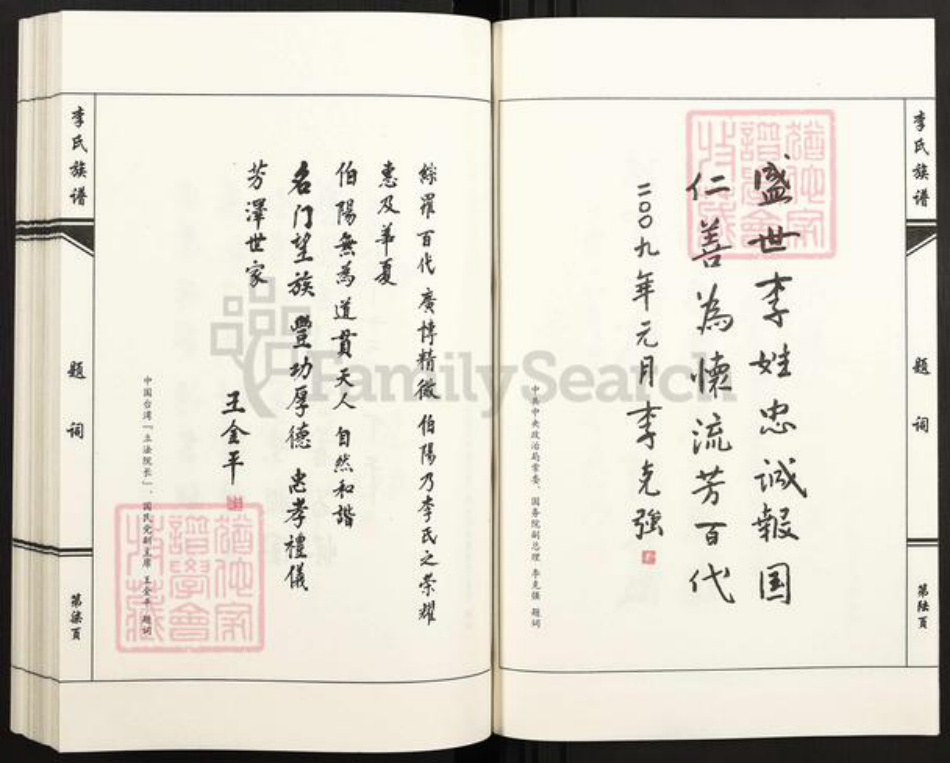 李氏族谱
题词
第陆頁
盛世李姓忠诚報国
仁善為懷流芳百代
二00九年元月李克強
中共中央政治局常委、国务院副总理 李克强 题词
綜羅百代 廣博精微 伯陽乃李氏之荣耀
惠及華夏
伯陽無為 道貫天人 自然和諧
名门望族 豐功厚德 忠孝禮儀
芳澤世家
王金平
中国台湾「立法院长」、国民党副主席 王金平 题词
李氏族谱
题词
第柒頁
猶他家
譜學會
收藏
猶他家
譜學會
收藏
FamilySearch